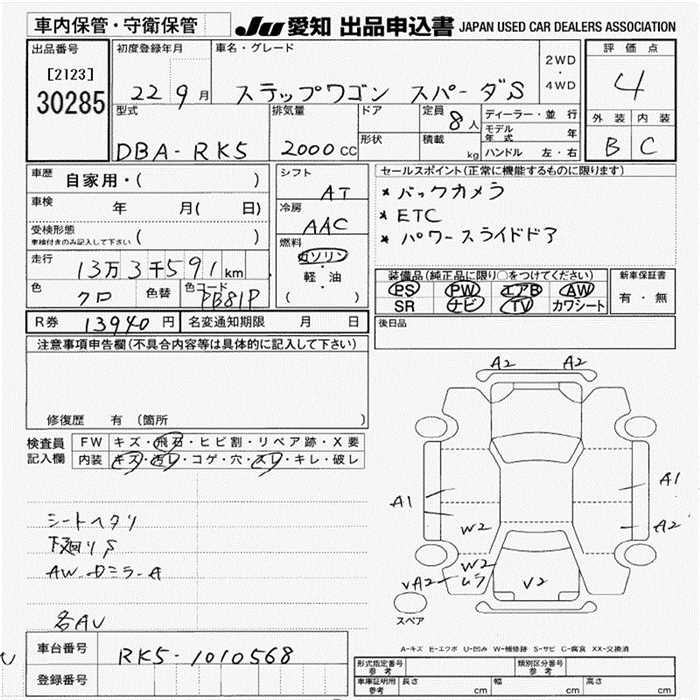 車内保管・守衛保管
JU 愛知 出品申込書 JAPAN USED CAR DEALERS ASSOCIATION
出品番号 初度登録年月 車名・グレード 2WD・4WD 評価点
[2123]
30285 22年9月 ステップワゴン スパーダS 4
型式 排気量 ドア 定員 8人 ディーラー・並行 外装 内装
形状 積載 kg モデル年式 年
DBA-RK5 2000cc ハンドル 左・右 B C
車歴 自家用・( ) シフト AT セールスポイント(正常に機能するものに限ります)
車検 年 月( 日) 冷房 AAC * バックカメラ
受検形態 車検付きのみ記入して下さい ( ) 燃料 * ETC
走行 13万3千591km ガソリン・軽・油 ( ) * パワースライドドア
色 クロ 色替 色コード PB81P
装備品(純正品に限り○をつけてください) 新車保証書
PS PW エアB AW 有・無
SR ナビ TV カワシート
R券 13940円 名変通知期限 月 日 後日品
注意事項申告欄(不具合内容等は具体的に記入して下さい)
修復歴 有 (箇所 )
検査員記入欄 FW キズ・飛石・ヒビ割・リペア跡・X要
内装 キズ・汚レ・コゲ・穴・スレ・キレ・破レ
A2 A2
A1 A1
シートヘタリ W2 A2
下廻りS W2
AW・ドミラーA VA2 ムラ V2
各AU
スペア
A-キズ E-エクボ U-凹み W-補修跡 S-サビ C-腐食 XX-交換済
車台番号 RK5-1010568
登録番号
形式指定番号 参考 類別区分番号 参考
車庫証明用 参考 長さ cm 幅 cm 高さ cm